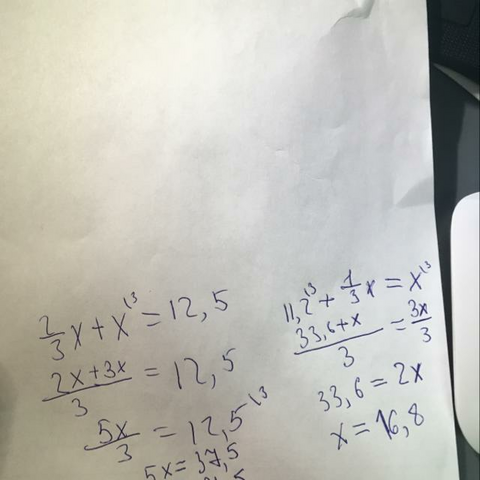 2/3 x + x^(3 = 12,5
(2x+3x)/3 = 12,5
5x/3 = 12,5^(3
5x = 37,5
11,2^(3 + 1/3 x = x^(3
(33,6+x)/3 = 3x/3
33,6 = 2x
x = 16,8